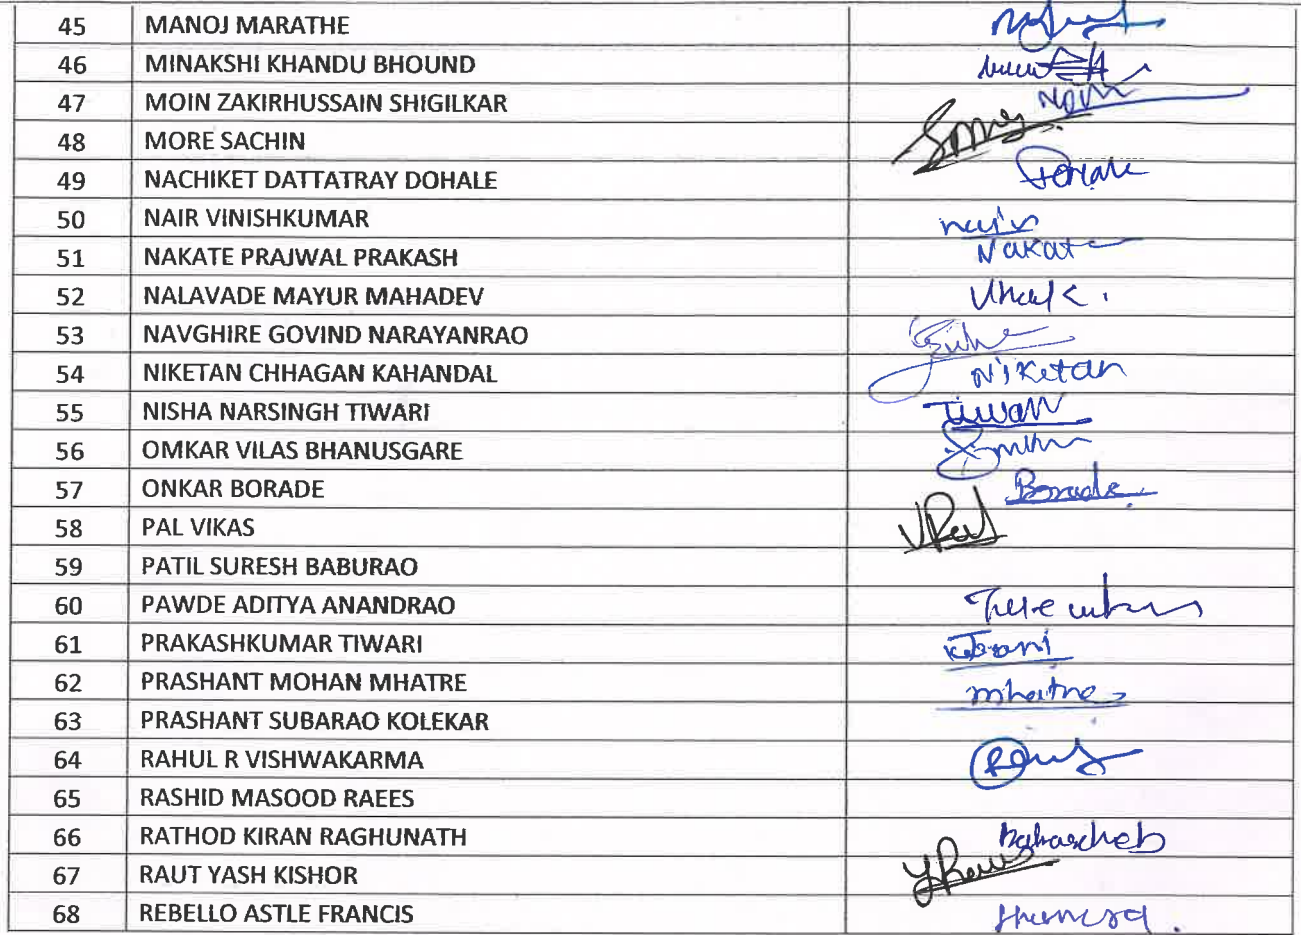 45 MANOJ MARATHE
46 MINAKSHI KHANDU BHOUND
47 MOIN ZAKIRHUSSAIN SHIGILKAR
48 MORE SACHIN
49 NACHIKET DATTATRAY DOHALE
50 NAIR VINISHKUMAR nair
51 NAKATE PRAJWAL PRAKASH Nakate
52 NALAVADE MAYUR MAHADEV
53 NAVGHIRE GOVIND NARAYANRAO
54 NIKETAN CHHAGAN KAHANDAL Niketan
55 NISHA NARSINGH TIWARI Tiwari
56 OMKAR VILAS BHANUSGARE
57 ONKAR BORADE Borade
58 PAL VIKAS VPal
59 PATIL SURESH BABURAO
60 PAWDE ADITYA ANANDRAO
61 PRAKASHKUMAR TIWARI
62 PRASHANT MOHAN MHATRE mhatre
63 PRASHANT SUBARAO KOLEKAR
64 RAHUL R VISHWAKARMA
65 RASHID MASOOD RAEES
66 RATHOD KIRAN RAGHUNATH
67 RAUT YASH KISHOR
68 REBELLO ASTLE FRANCIS